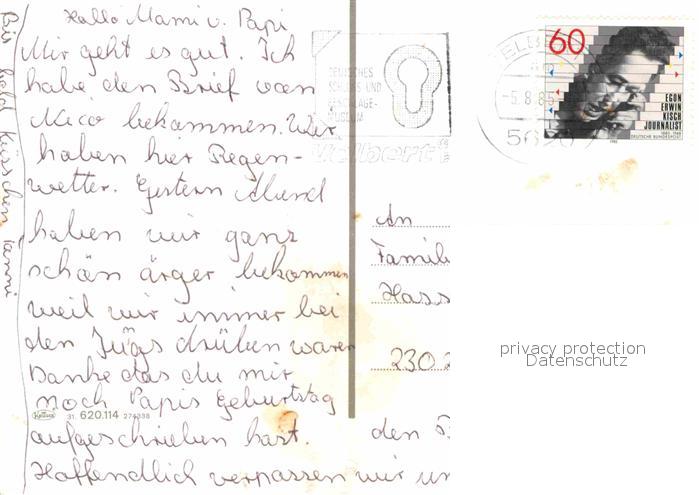 Hallo Mami u. Papi
Mir geht es gut. Ich
habe den Brief von
Nico bekommen. Wir
haben hier Regen-
wetter. Gestern Abend
haben wir ganz
schön ärger bekommen
weil wir immer bei
den Jungs drüben waren
Danke das du mir
noch Papis Geburtstag
aufgeschrieben hast.
Hoffendlich verpassen wir un
Bis bald Küsschen
Krüger
31. 620.114 274338
DEUTSCHES
SCHLOSS UND
BESCHLÄGE-
MUSEUM
Velbert
VELBE
-5.8.85
5620
60
EGON
ERWIN
KISCH
JOURNALIST
1885-1948
DEUTSCHE BUNDESPOST
1985
An
Famili
Hass
2302
den
privacy protection
Datenschutz